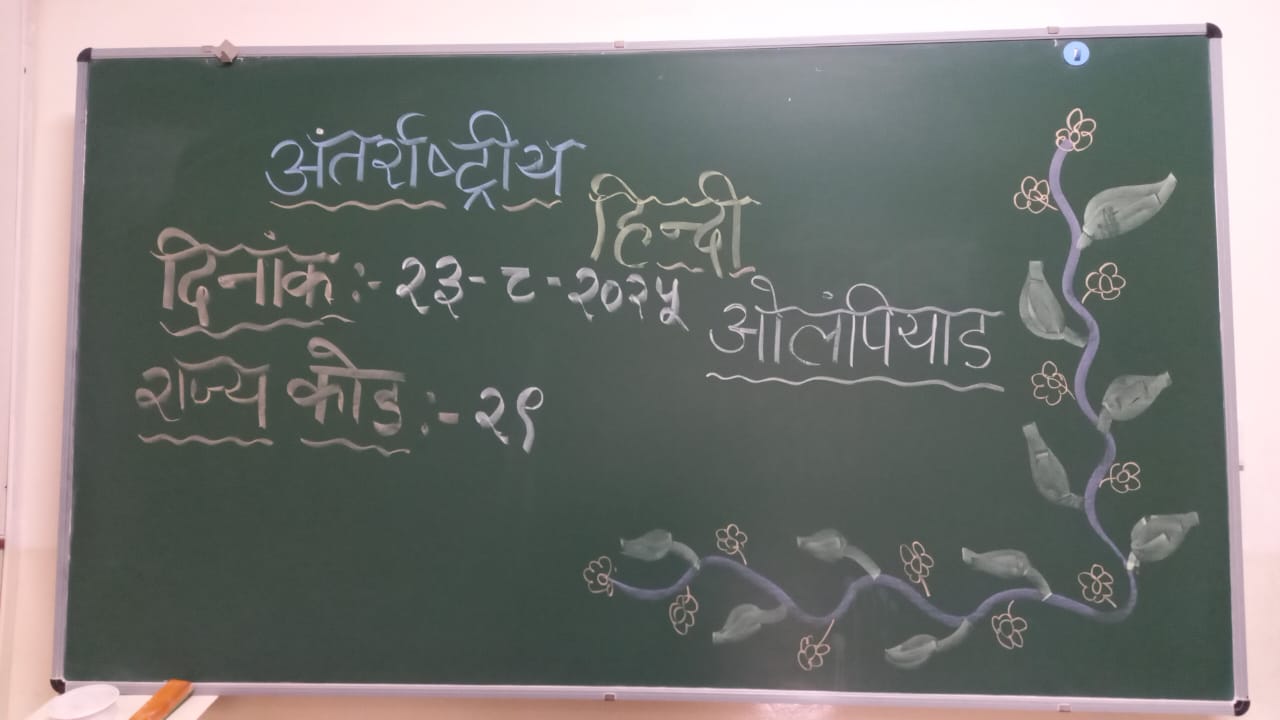 अंतर्राष्ट्रीय
हिन्दी
ओलंपियाड
दिनांक :- २३-८-२०२५
राज्य कोड :- २९